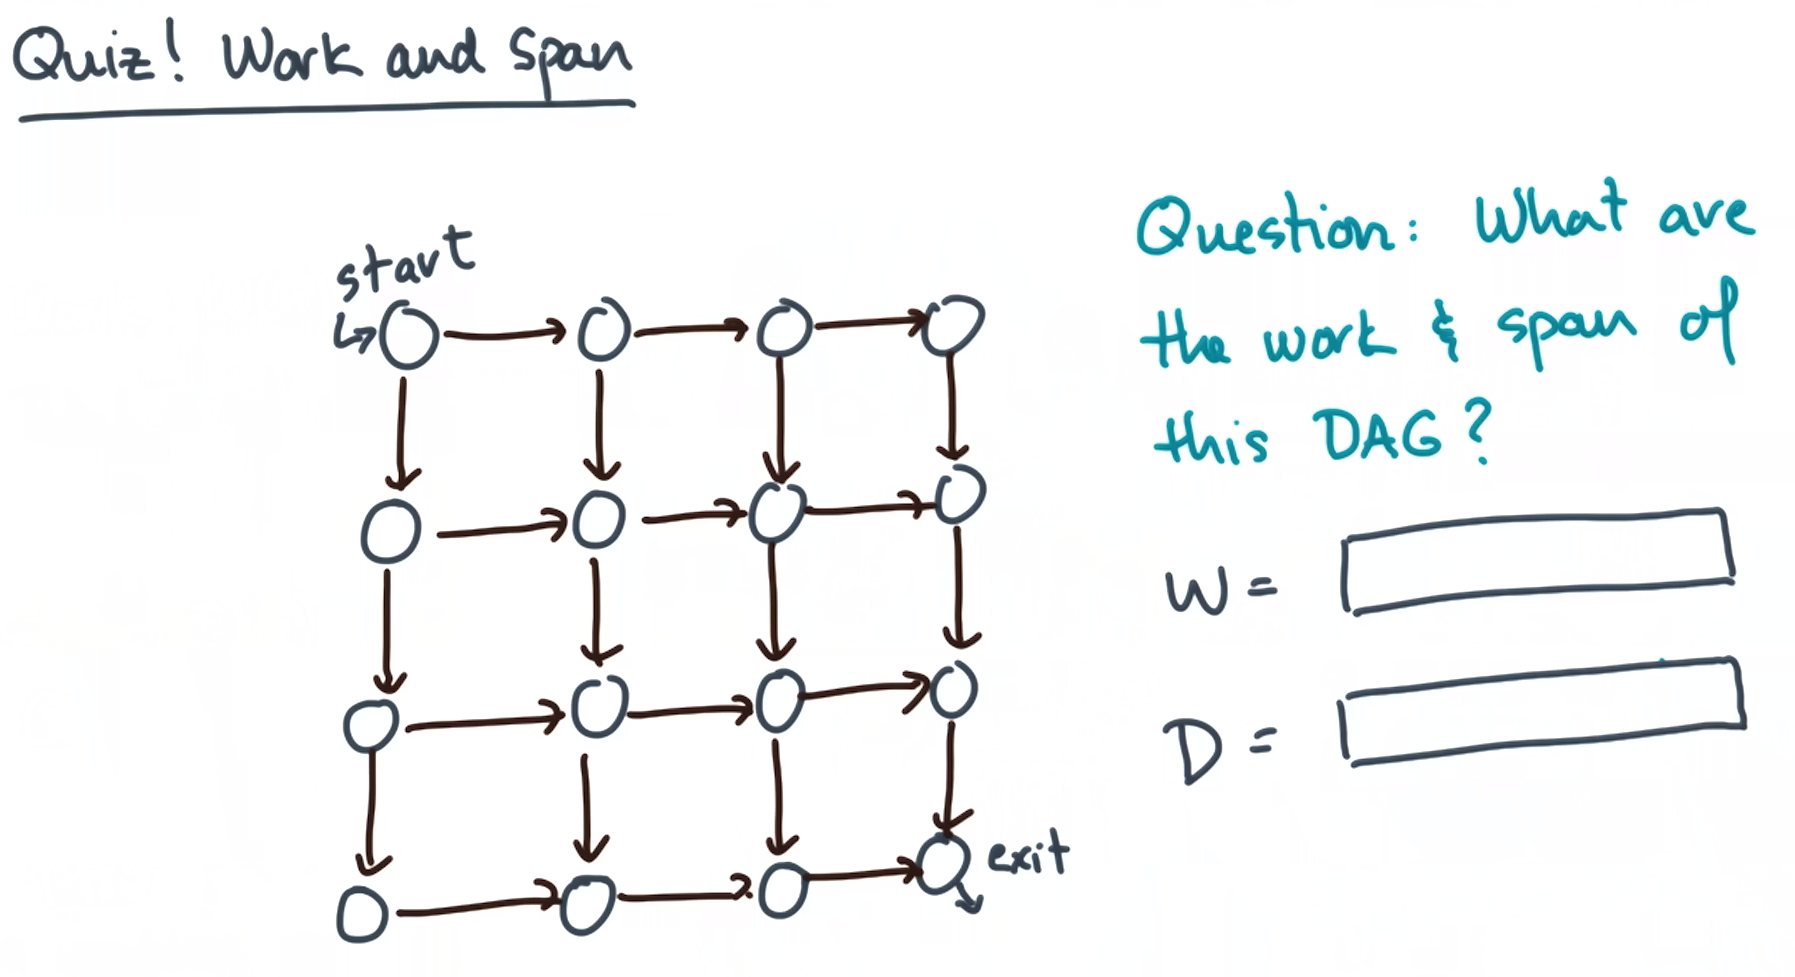 Quiz! Work and Span
start
Question: What are
the work & span of
this DAG?
W =
D =
exit